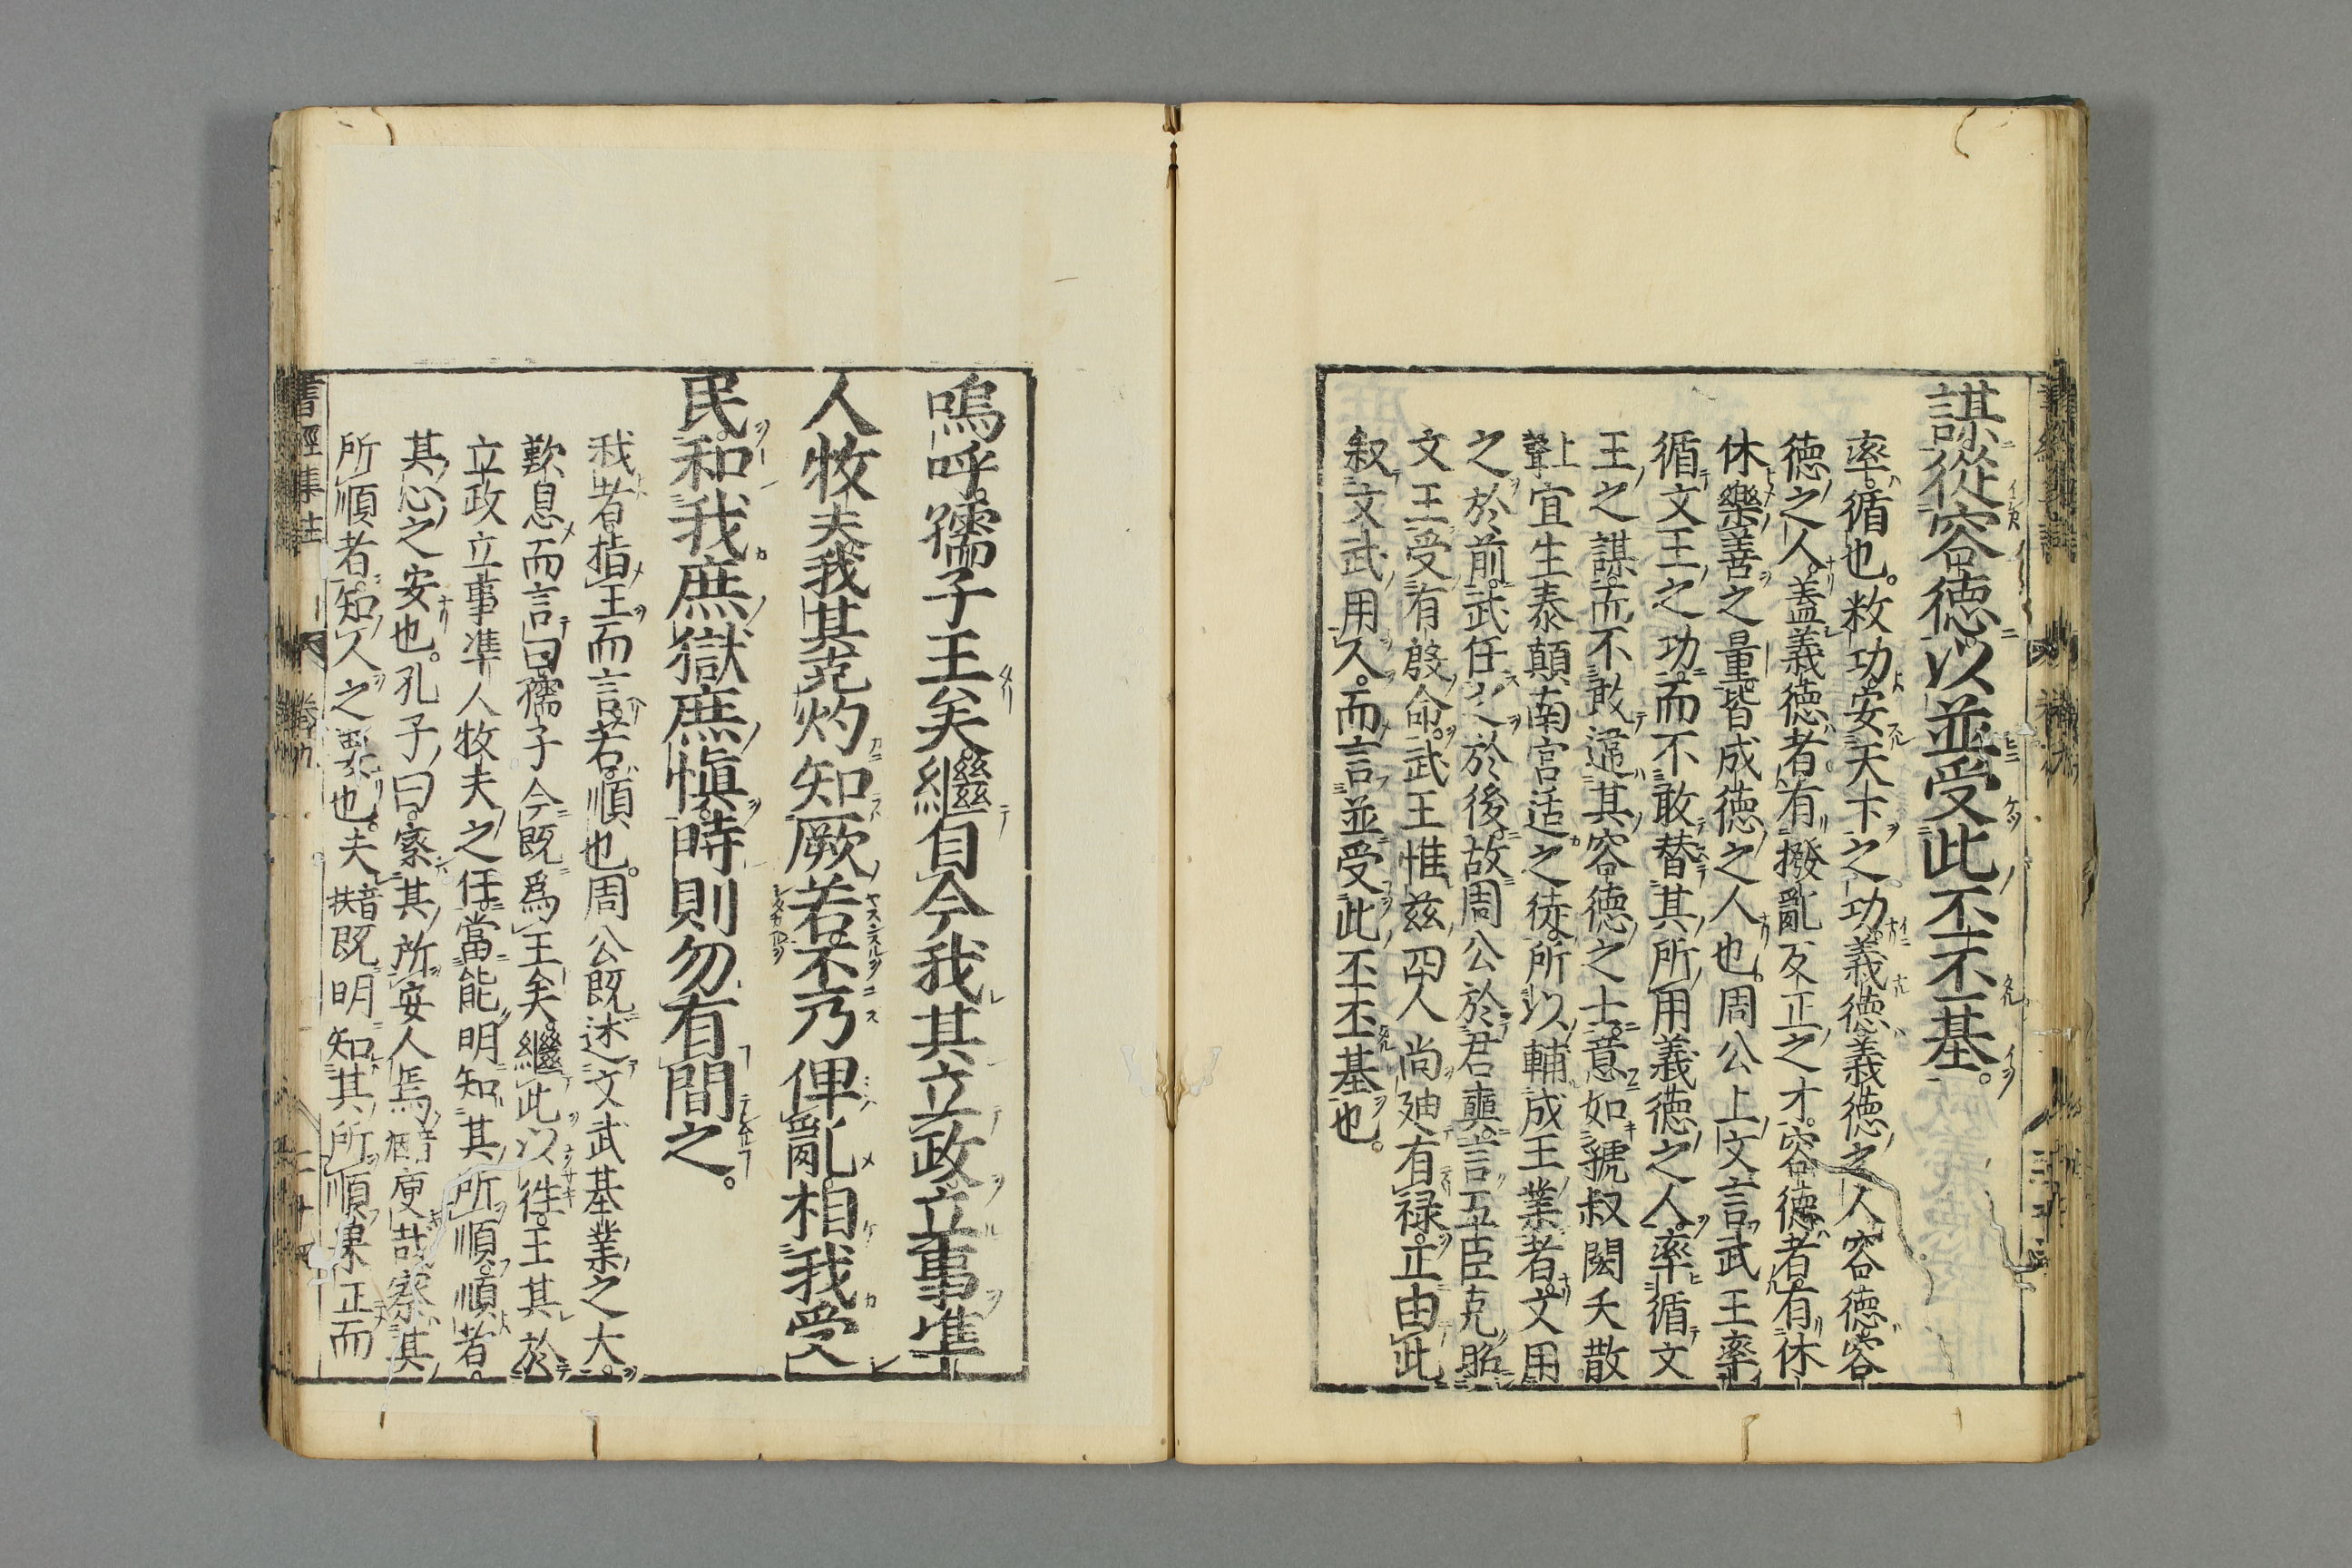 謀從容德以並受此丕丕基。
率循也。敉功安天下之功。義德義德之人容德容
德之人。蓋義德者有撥亂反正之才。容德者有休
休樂善之量。皆成德之人也。周公上文言武王率
循文王之功。而不敢替其所用義德之人。率循文
王之謀。而不敢違其容德之士。意如虢叔閎夭散
宜生泰顛南宮适之徒。所以輔成王業者。文用
之於前。武任之於後。故周公於君奭。言五臣克昭
文王受有殷命。武王惟茲四人尚迪有祿。正由此
叙文武用人。而言並受此丕丕基也。
嗚呼孺子王矣繼自今我其立政立事準
人牧夫我其克灼知厥若丕乃俾亂相我受
民和我庶獄庶愼時則勿有間之。
我者指王而言。若順也。周公既述文武基業之大。
歎息而言曰孺子今既爲王矣繼此以徃。王其於
立政立事準人牧夫之任。當能明知其所順。順者。
其心之安也。孔子曰。察其所安人焉廋哉察其
所順者。知人之要也。夫既明知其所順果正而
書經集註 卷九 二十四